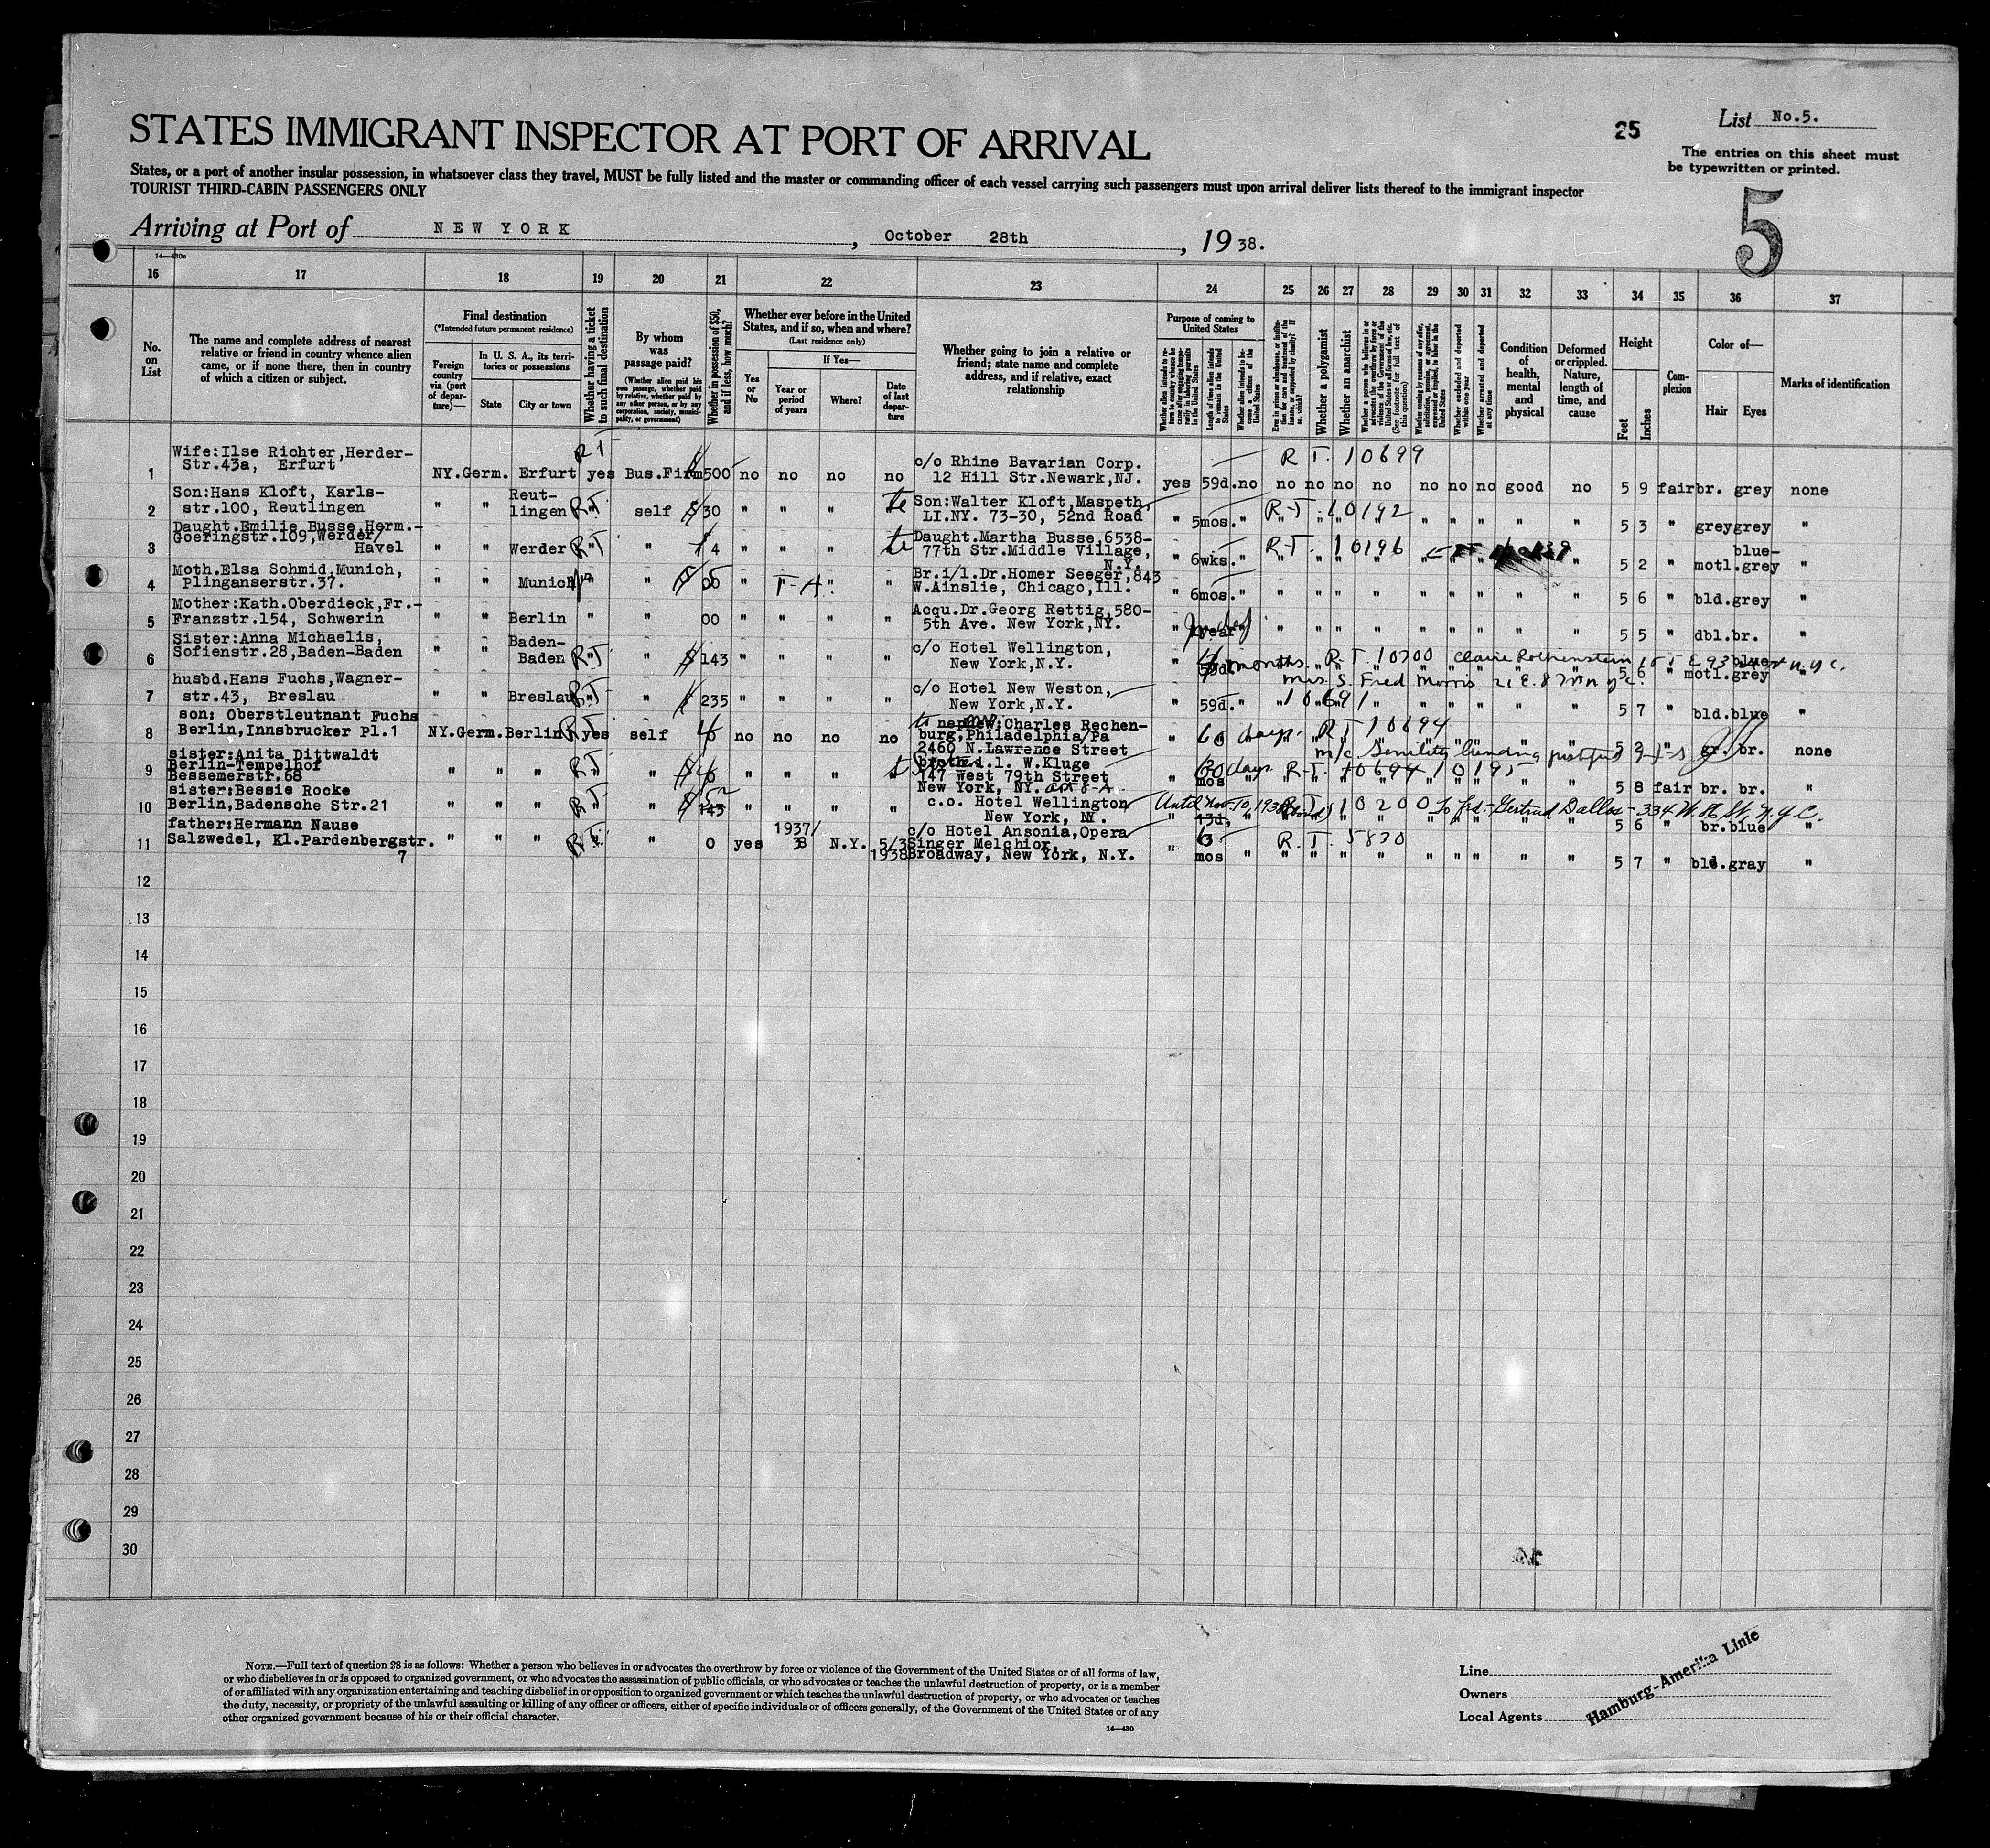 25
List No.5.
STATES IMMIGRANT INSPECTOR AT PORT OF ARRIVAL
The entries on this sheet must
be typewritten or printed.
States, or a port of another insular possession, in whatsoever class they travel, MUST be fully listed and the master or commanding officer of each vessel carrying such passengers must upon arrival deliver lists thereof to the immigrant inspector
TOURIST THIRD-CABIN PASSENGERS ONLY
5
Arriving at Port of NEW YORK, October 28th, 1938.
16 17 18 19 20 21 22 23 24 25 26 27 28 29 30 31 32 33 34 35 36 37
No. on List
The name and complete address of nearest
relative or friend in country whence alien
came, or if none there, then in country
of which a citizen or subject.
Final destination
(*Intended future permanent residence)
Foreign country via (port of departure)—
In U. S. A., its territories or possessions
State
City or town
Whether having a ticket to such final destination
By whom was passage paid?
(Whether alien paid his own passage, whether paid by relative, whether paid by any other person, or by any corporation, society, municipality, or government)
Whether in possession of $50, and if less, how much?
Whether ever before in the United
States, and if so, when and where?
(Last residence only)
Yes or No
If Yes—
Year or period of years
Where?
Date of last departure
Whether going to join a relative or
friend; state name and complete
address, and if relative, exact
relationship
Purpose of coming to United States
Length of time alien intends to remain in the United States
Whether a polygamist
Whether an anarchist
Whether arrested and deported at any time
Condition of health, mental and physical
Deformed or crippled. Nature, length of time, and cause
Height
Feet
Inches
Complexion
Color of—
Hair
Eyes
Marks of identification
1 Wife:Ilse Richter,Herder-
Str.43a, Erfurt
NY.Germ. Erfurt yes Bus.Firm 500 no no no no
c/o Rhine Bavarian Corp.
12 Hill Str.Newark,NJ.
yes 59d. no no no no no no no no good no 5 9 fair br. grey none
R T. 10699
2 Son:Hans Kloft, Karls-
str.100, Reutlingen
" " Reut-
lingen R.T. self $ 30 " " " "
Son:Walter Kloft,Maspeth,
LI.NY. 73-30, 52nd Road
" 5mos. " R-T. 10192 5 3 " grey grey "
3 Daught.Emilie Busse,Herm.-
Goeringstr.109,Werder/
Havel
" " Werder R.T " 4 " " "
Daught.Martha Busse,6538-
77th Str.Middle Village,
N.Y.
" 6wks. " R-T. 10196 5 2 " motl. blue-
grey "
4 Moth.Elsa Schmid,Munich,
Plinganserstr.37.
" " Munich " 00 " T-A. " "
Br.i/l.Dr.Homer Seeger,843
W.Ainslie, Chicago,Ill.
" 6mos. " 5 6 " bld.grey "
5 Mother:Kath.Oberdieck,Fr.-
Franzstr.154, Schwerin
" " Berlin " " 00 " " " "
Acqu.Dr.Georg Rettig,580-
5th Ave. New York,NY.
" 5 5 " dbl.br. "
6 Sister:Anna Michaelis,
Sofienstr.28,Baden-Baden
" " Baden-
Baden R.T. " $ 143 " " " "
c/o Hotel Wellington,
New York,N.Y.
" months. R.T. 10700 Claire Rothenstein N.Y.C.
5 6 " motl. blue
grey "
7 husbd.Hans Fuchs,Wagner-
str.43, Breslau
" " Breslau R.T. " 235 " " " "
c/o Hotel New Weston,
New York,N.Y.
Mrs. S. Fred Morris 21 E. 87 N.Y.C.
" 59d. " 10691 5 7 " bld.blue "
8 son: Oberstleutnant Fuchs
Berlin,Innsbrucker Pl.1
NY.Germ.Berlin R.T. yes self no no no no
to nephew:Charles Rechen-
burg,Philadelphia/Pa
2460 N.Lawrence Street
" 60 days. R T 10694
m/c Senility 5 2 gr. br. none
9 sister:Anita Dittwaldt
Berlin-Tempelhof
Bessemerstr.68
" " " R.T. " " " " "
Brother i.l. W.Kluge
147 West 79th Street
New York, NY. apt 8-A.
" 60 days. mos R-T. 10694 10195 5 8 fair br. br. "
10 sister:Bessie Rocke
Berlin,Badensche Str.21
" " " R.T. " $ 143 " " " "
c.o. Hotel Wellington
New York, NY.
Until Nov. 10, 1938 10200 To frd.- Gertrud Dallos - 334 W. N.Y.C.
5 6 " br.blue "
11 father:Hermann Nause
Salzwedel, Kl.Pardenbergstr.
7
" " " R.T. " 0 yes 1937/
38 N.Y. 5/3
1938
c/o Hotel Ansonia,Opera
Singer Melchior,
Broadway, New York, N.Y.
" 6 mos " R.T. 5830 5 7 " bld.gray "
12
13
14
15
16
17
18
19
20
21
22
23
24
25
26
27
28
29
30
NOTE.—Full text of question 28 is as follows: Whether a person who believes in or advocates the overthrow by force or violence of the Government of the United States or of all forms of law,
or who disbelieves in or is opposed to organized government, or who advocates the assassination of public officials, or who advocates or teaches the unlawful destruction of property, or is a member
of or affiliated with any organization entertaining and teaching disbelief in or opposition to organized government or which teaches the unlawful destruction of property, or who advocates or teaches
the duty, necessity, or propriety of the unlawful assaulting or killing of any officer or officers, either of specific individuals or of officers generally, of the Government of the United States or of any
other organized government because of his or their official character.
14—430
Line
Owners
Local Agents
Hamburg-Amerika Linie